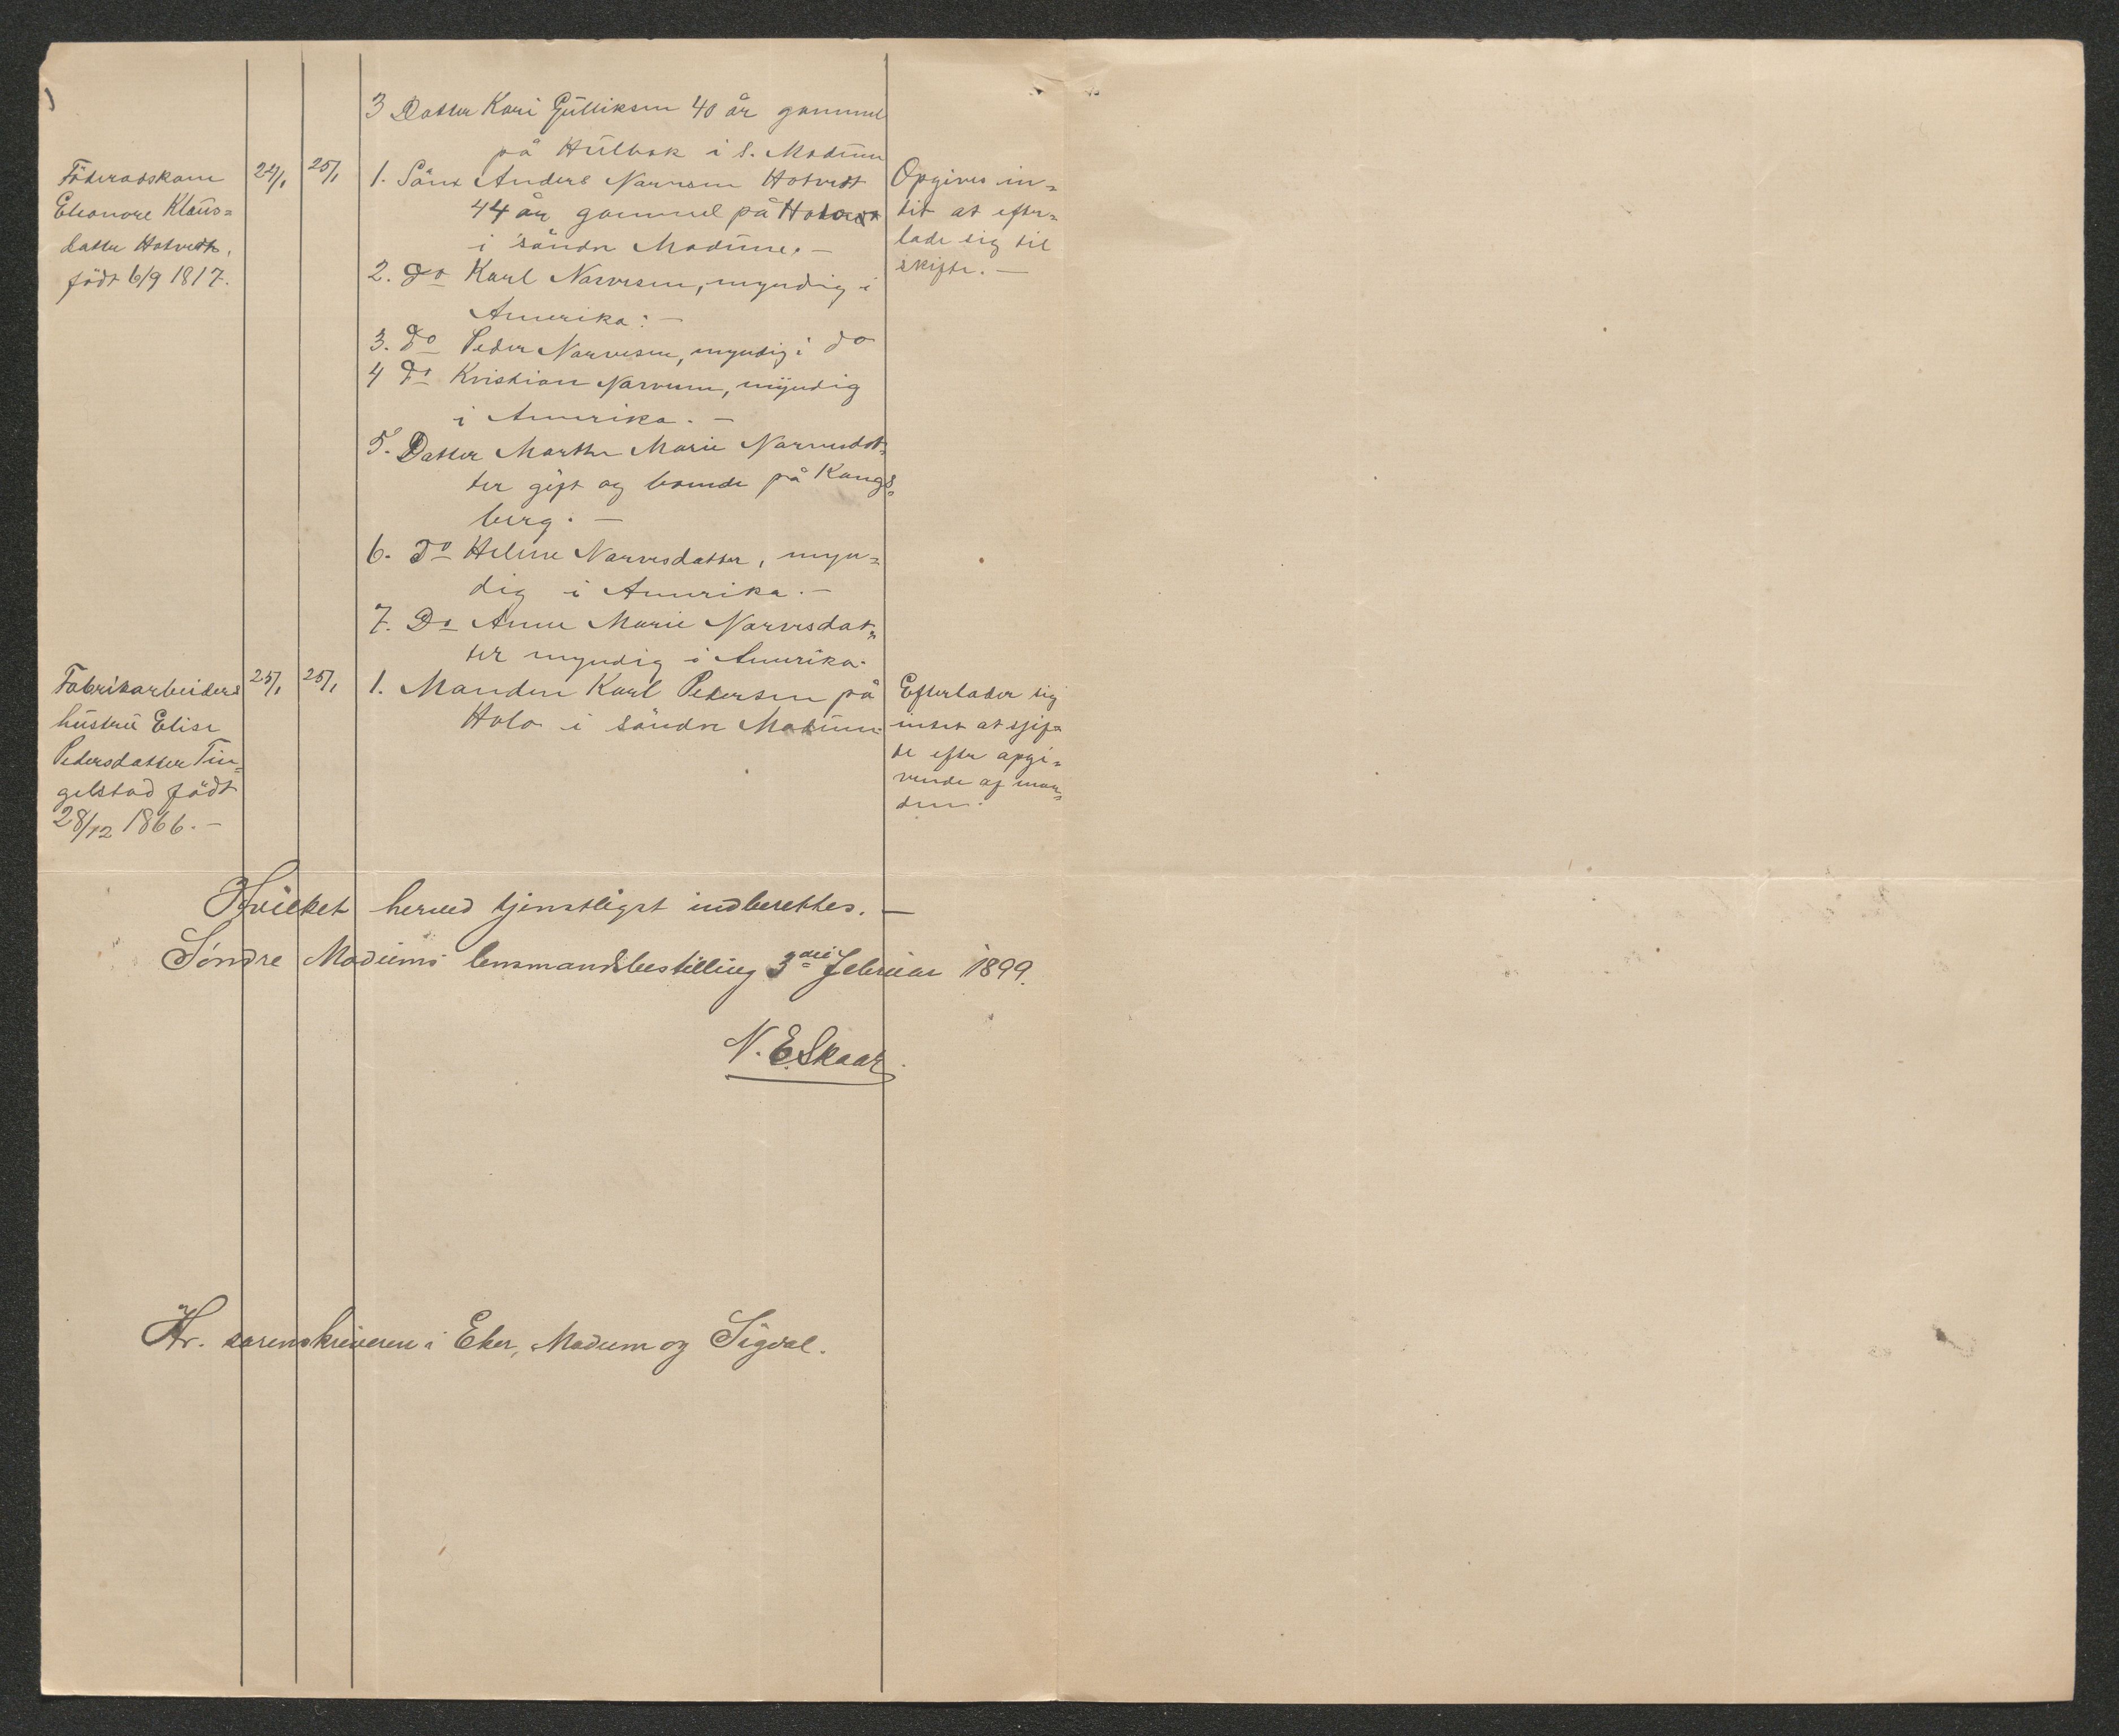 3 Datter Kari Gulliksen 40 år gammel
på Hulbak i S. Modum
Föderådskone
Eleonore Klaus=
datter Hotvedt,
født 6/9 1817.
24/1
25/1
1. Sön Anders Narvesen Hotvedt
44 år gammel på Hotvedt
i söndre Modum. —
2. Do Karl Narvesen, myndig i
Amerika: —
3. Do Peder Narvesen, myndig i do
4 Do Kristian Narvesen, myndig
i Amerika. —
5. Datter Marthe Marie Narvesdat=
ter gift og boende på Kongs=
berg. —
6. Do Helene Narvesdatter, myn=
dig i Amerika. —
7. Do Anne Marie Narvesdat=
ter myndig i Amerika.
Opgives in=
tet at efter=
lade sig til
skifte. —
Fabrikarbeiders
hustru Elise
Pedersdatter Tin=
gelstad födt
28/12 1866. —
25/1
25/1
1. Manden Karl Petersen på
Holo i söndre Modum
Efterlader sig
intet at skif=
te efter opgi=
vende af man=
den.
Hvilket herved tjenstligst indberettes. —
Søndre Modums lensmandsbestilling 3die Februar 1899.
N. E. Skaar.
Hr. sorenskriveren i Eker, Modum og Sigdal.